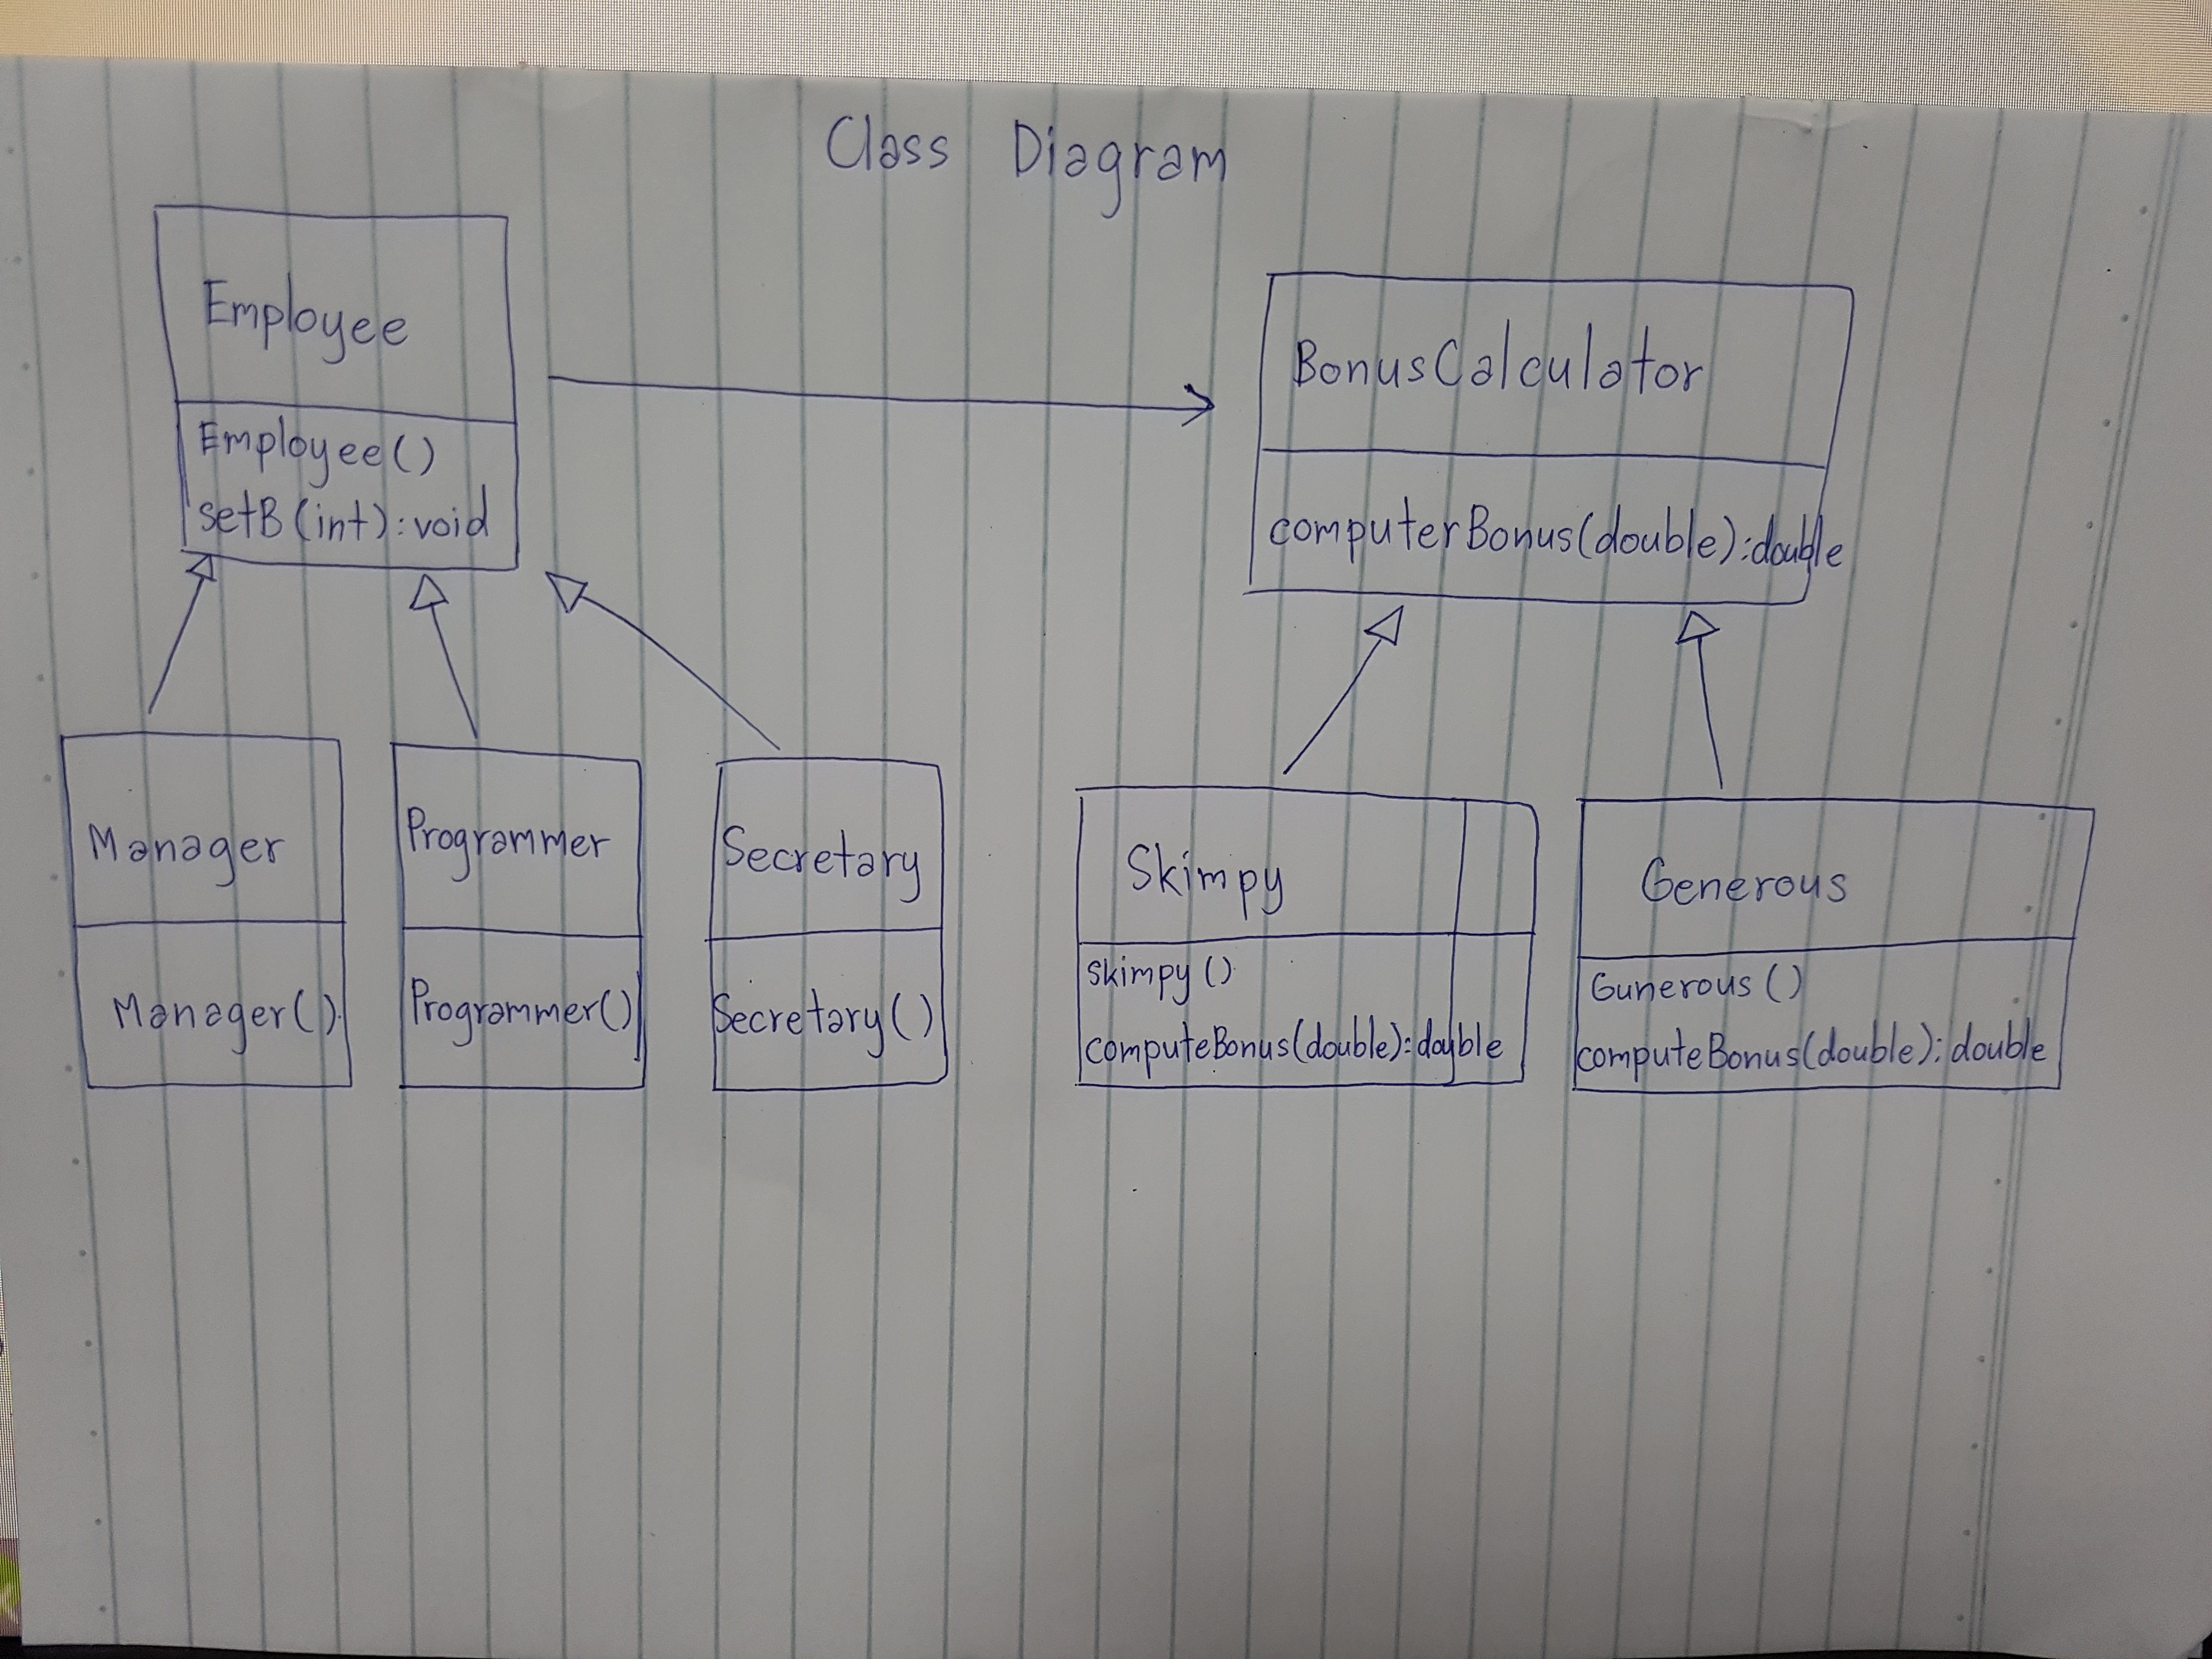 Class Diagram
Employee
Employee()
setB(int):void
BonusCalculator
computerBonus(double):double
Manager
Manager()
Programmer
Programmer()
Secretary
Secretary()
Skimpy
skimpy()
computeBonus(double):double
Generous
Gunerous()
computeBonus(double):double